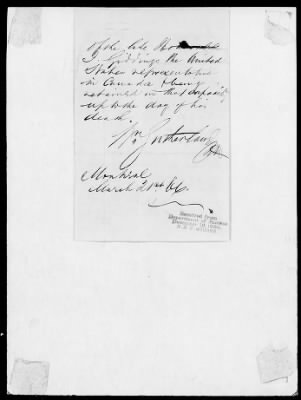 of the late Honorable
J. Giddings the United
States representative
in Canada & being
retained in that capacity
up to the day of his
death.
Wm Sutherland
Montreal
March 21st 66.
Received from
Department of